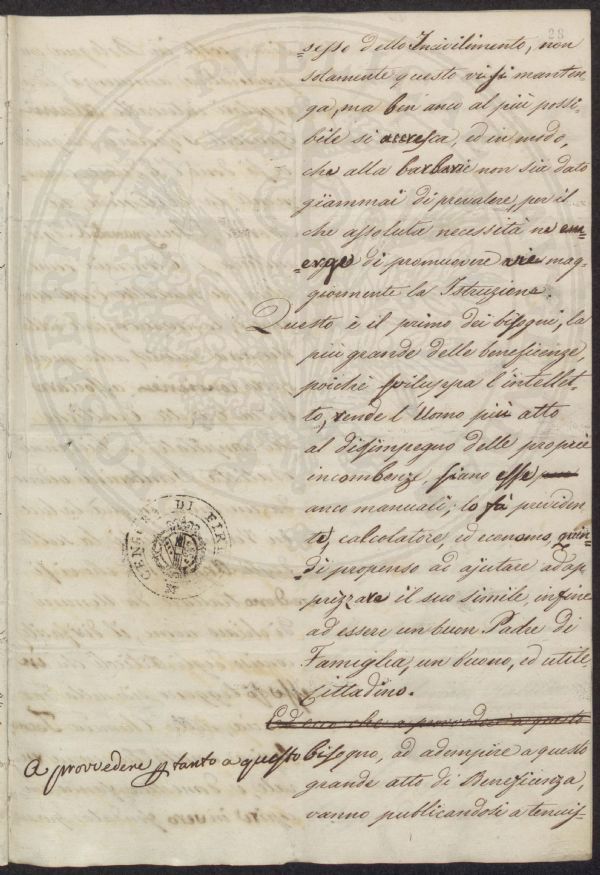 28
sesso dello Incivilimento, non
solamente questo vi si manten-
ga, ma ben anco al più possi-
bile si accresca, ed in modo,
che alla barbarie non sia dato
giammai di prevalere, per il
che assoluta necessità ne em-
erge di promuovere mag-
giormente la Istruzione.
Questo è il primo dei bisogni, la
più grande delle beneficenze,
poichè sviluppa l'intellet-
to, rende l'Uomo più atto
al disimpegno delle proprie
incombenze, siano esse
anco manuali; lo fà previden-
te, calcolatore, ed economo, quin-
di propenso ad ajutare ad ap-
prezzare il suo simile, infine
ad essere un buon Padre di
Famiglia, un buono, ed utile
Cittadino.
Ed ecco che a provvedere a questo
A provvedere ꝑtanto a questo bisogno, ad adempire a questo
grande atto di Beneficenza,
vanno publicandosi a tenuis-
CENSURA DI FIR